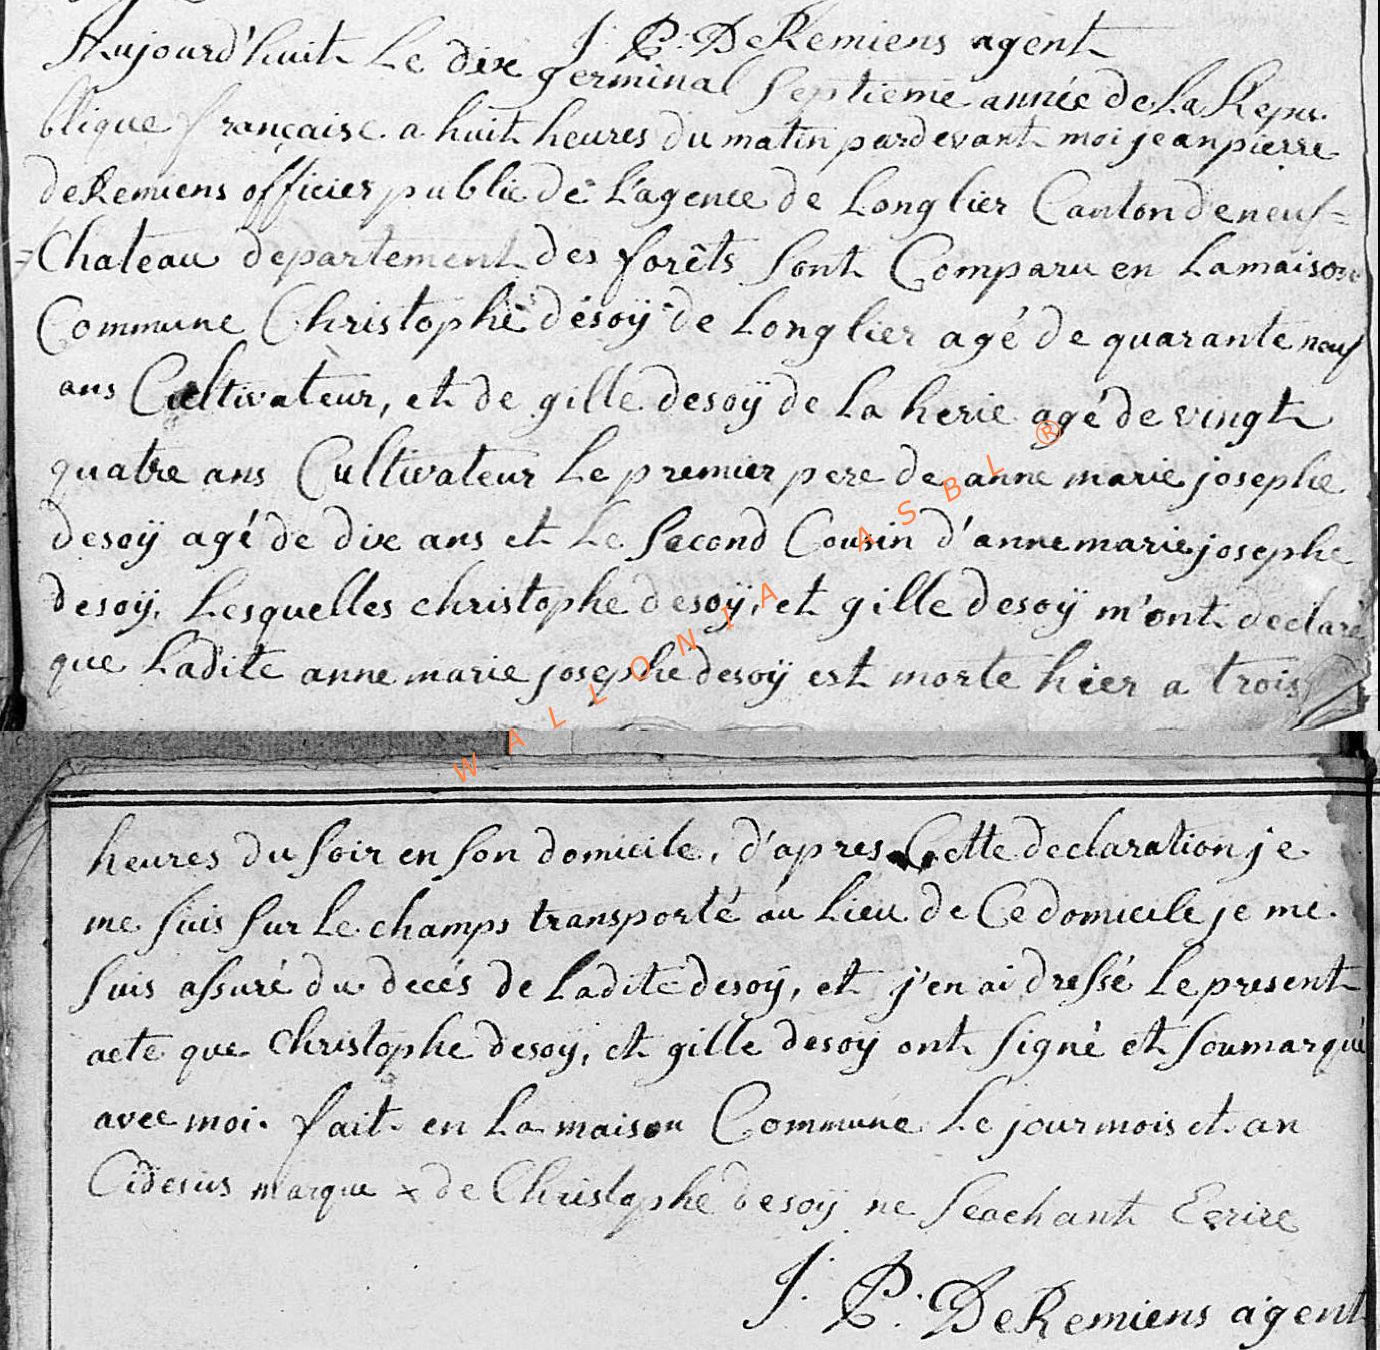 J. P. DeRemiens agent
Aujourd'huit Le dix germinal Septieme année de La Repu.
blique française a huit heures du matin pardevant moi jean pierre
deRemiens officier public de L'agence de Longlier Canton de neuf=
=Chateau departement des forêts Sont Comparu en La maison
Commune Christophe desoÿ de Longlier agé de quarante neuf
ans Cultivateur, et de gille desoÿ de La herie agé de vingt
quatre ans Cultivateur Le premier pere de anne marie josephe
desoÿ agé de dix ans et Le Second Cousin d'anne marie josephe
desoÿ, Lesquelles christophe desoÿ, et gille desoÿ m'ont declaré
que Ladite anne marie josephe desoÿ est morte hier a trois
heures du Soir en Son domicile, d'apres Cette declaration je
me Suis Sur Le champs transporté au Lieu de Ce domicile je me
Suis assuré du decés de Ladite desoÿ, et j'en ai dressé Le present
acte que Christophe desoÿ, et gille desoÿ ont Signé et Soumarqué
avec moi. fait en La maison Commune Le jour mois et an
Cidesus marque x de Christophe desoÿ ne Scachant Ecrire
J. P. DeRemiens agent
WALLONIA ASBL ®